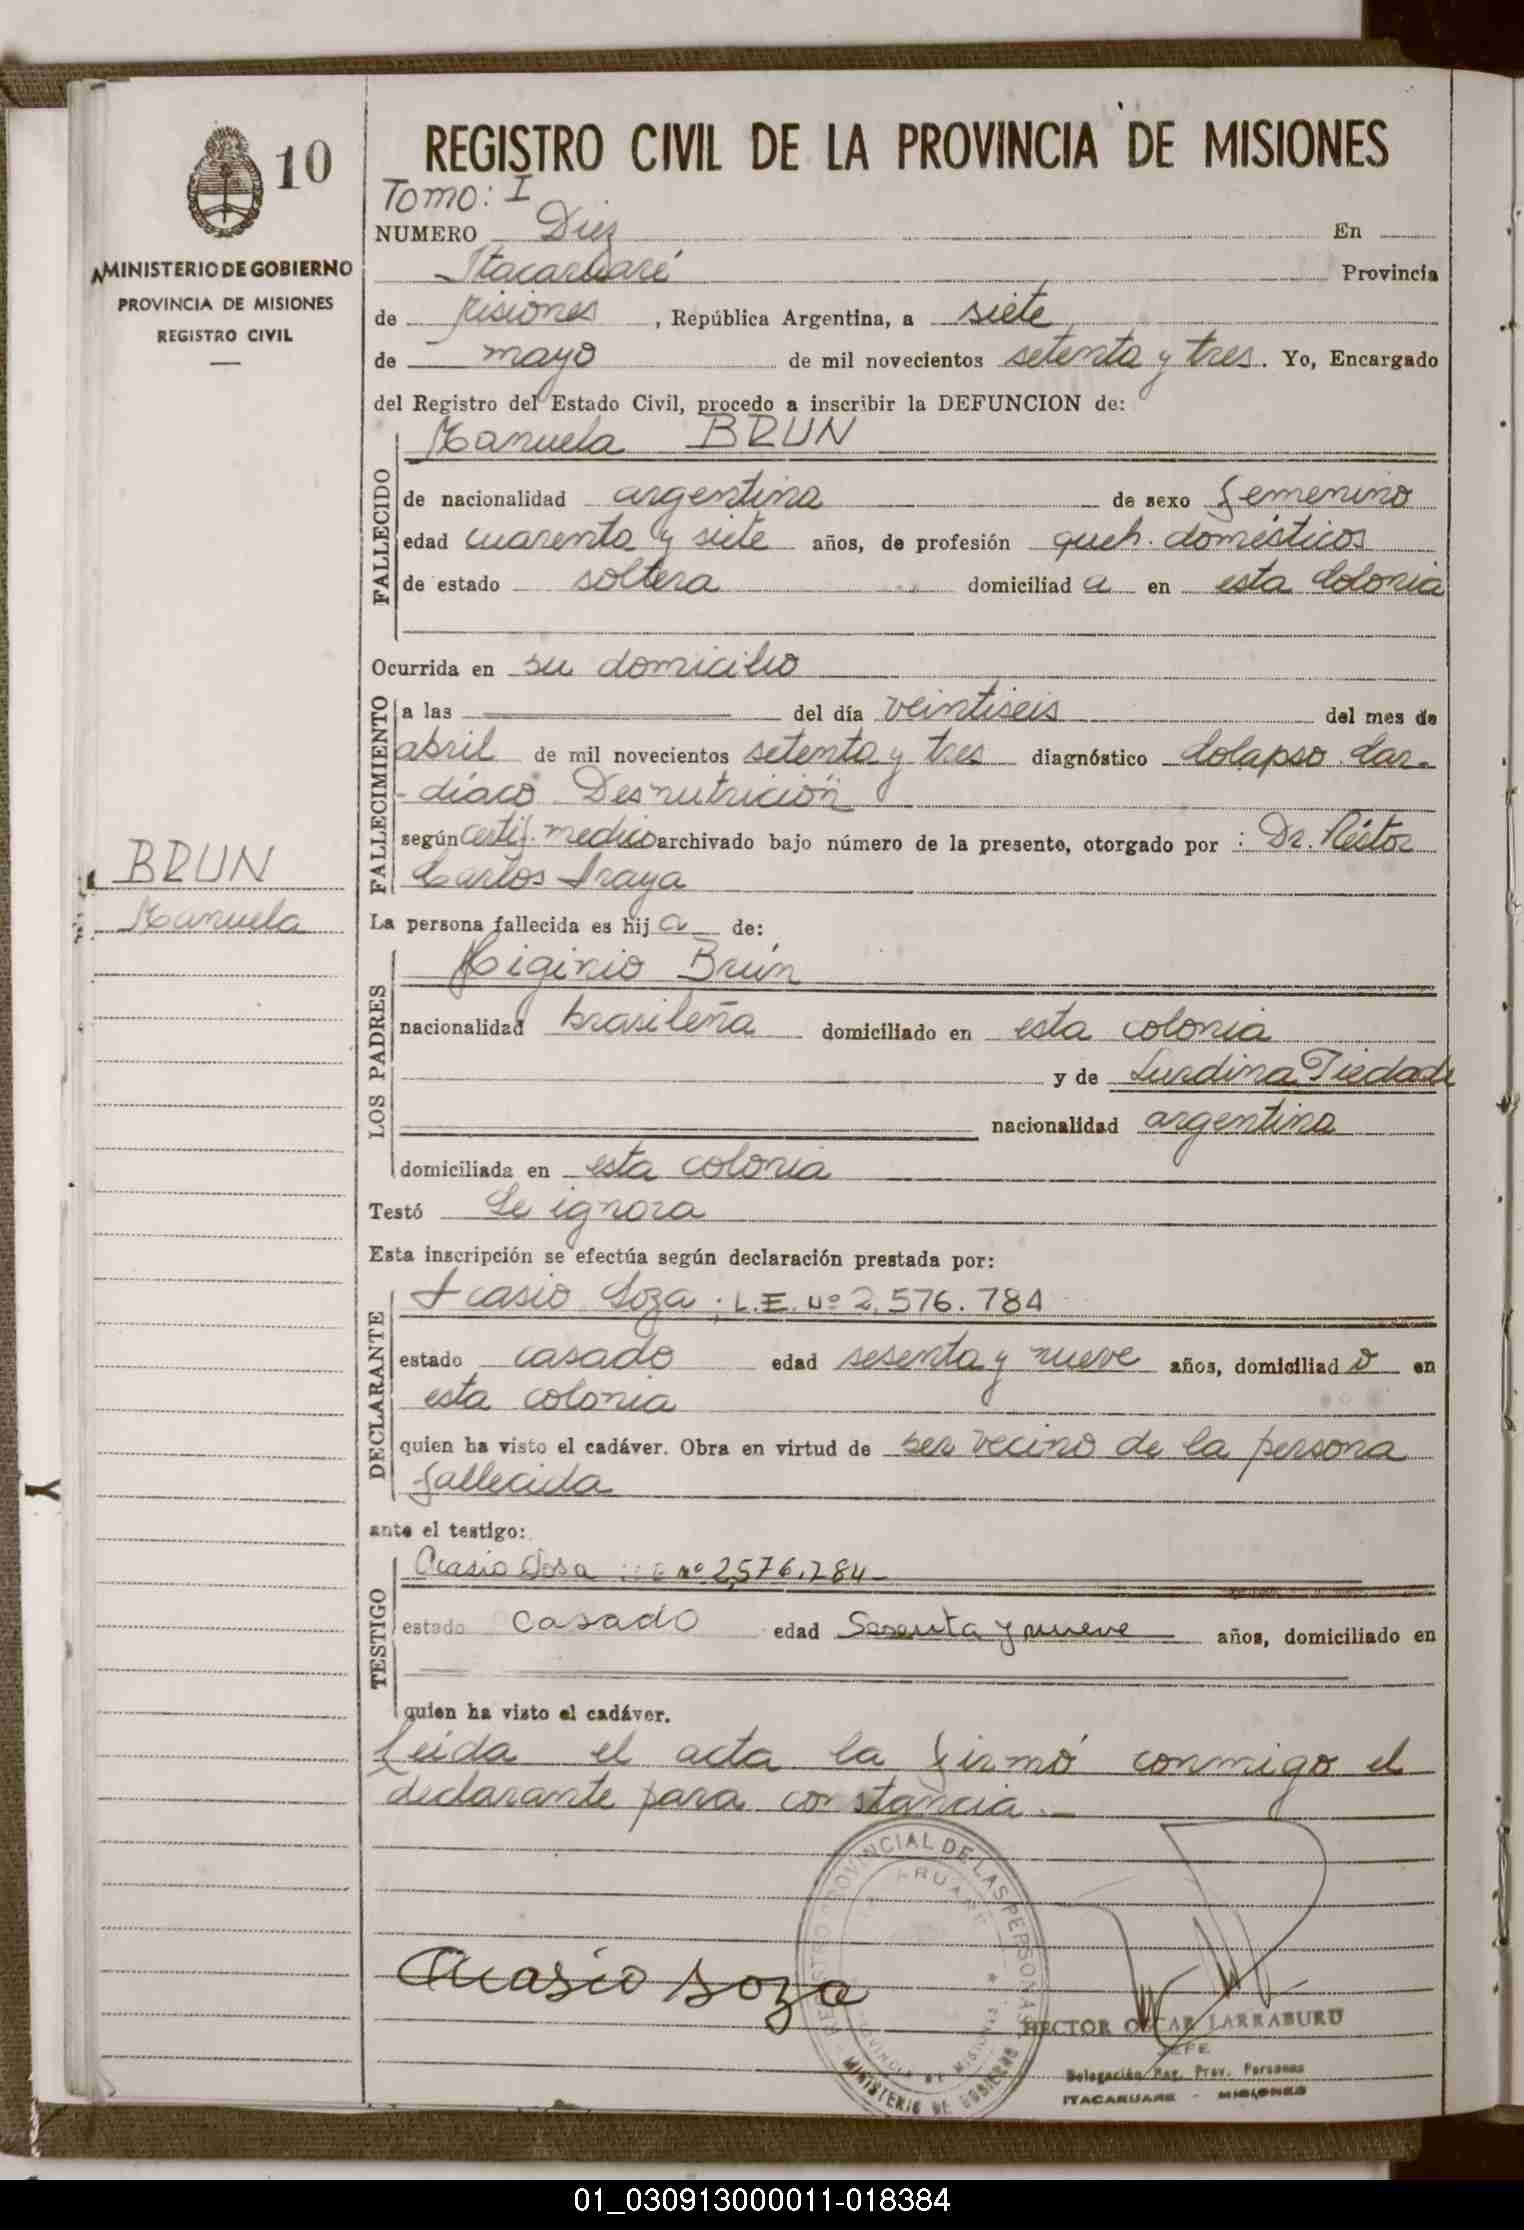 10
MINISTERIO DE GOBIERNO
PROVINCIA DE MISIONES
REGISTRO CIVIL
REGISTRO CIVIL DE LA PROVINCIA DE MISIONES
Tomo: I
NUMERO Diez En
Itacaruaré Provincia
de Misiones, República Argentina, a siete
de mayo de mil novecientos setenta y tres. Yo, Encargado
del Registro del Estado Civil, procedo a inscribir la DEFUNCION de:
Manuela BRUN
FALLECIDO
de nacionalidad argentina de sexo femenino
edad cuarenta y siete años, de profesión queh. domésticos
de estado soltera domiciliad a en esta Colonia
Ocurrida en su domicilio
FALLECIMIENTO
a las del día veintiseis del mes de
abril de mil novecientos setenta y tres diagnóstico Colapso Car-
díaco Desnutrición
según certif. medico archivado bajo número de la presente, otorgado por : Dr. Néstor
Carlos Araya
BRUN
Manuela
La persona fallecida es hij a de:
LOS PADRES
Higinio Brun
nacionalidad brasileña domiciliado en esta colonia
y de Lurdina Piedade
nacionalidad argentina
domiciliada en esta colonia
Testó Se ignora
Esta inscripción se efectúa según declaración prestada por:
DECLARANTE
Acasio Soza; L.E. Nº 2.576.784
estado casado edad sesenta y nueve años, domiciliad o en
esta colonia
quien ha visto el cadáver. Obra en virtud de ser vecino de la persona
fallecida
ante el testigo:
TESTIGO
Acasio Sosa nº 2.576.784
estado Casado edad Sesenta y nueve años, domiciliado en
quien ha visto el cadáver.
Leida el acta la firmó conmigo el
declarante para constancia.
Acasio Soza
REGISTRO PROVINCIAL DE LAS PERSONAS
MINISTERIO DE GOBIERNO
PROVINCIA DE MISIONES
HECTOR OSCAR LARRABURU
JEFE
Delegación Reg. Prov. Personas
ITACARUARE - MISIONES
01_030913000011-018384